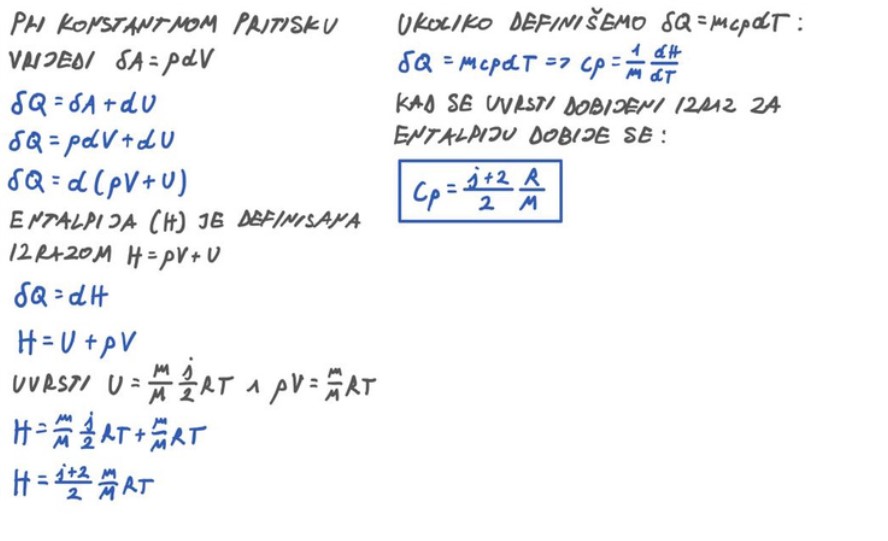 PRI KONSTANTNOM PRITISKU
VRIJEDI δA = pdV
δQ = δA + dU
δQ = pdV + dU
δQ = d(pV + U)
ENTALPIJA (H) JE DEFINISANA
IZRAZOM H = pV + U
δQ = dH
H = U + pV
UVRSTI U = m/M j/2 RT ∧ pV = m/M RT
H = m/M j/2 RT + m/M RT
H = j+2/2 m/M RT
UKOLIKO DEFINIŠEMO δQ = mcpdT :
δQ = mcpdT => Cp = 1/m dH/dT
KAD SE UVRSTI DOBIJENI IZRAZ ZA
ENTALPIJU DOBIJE SE :
Cp = j+2/2 R/M